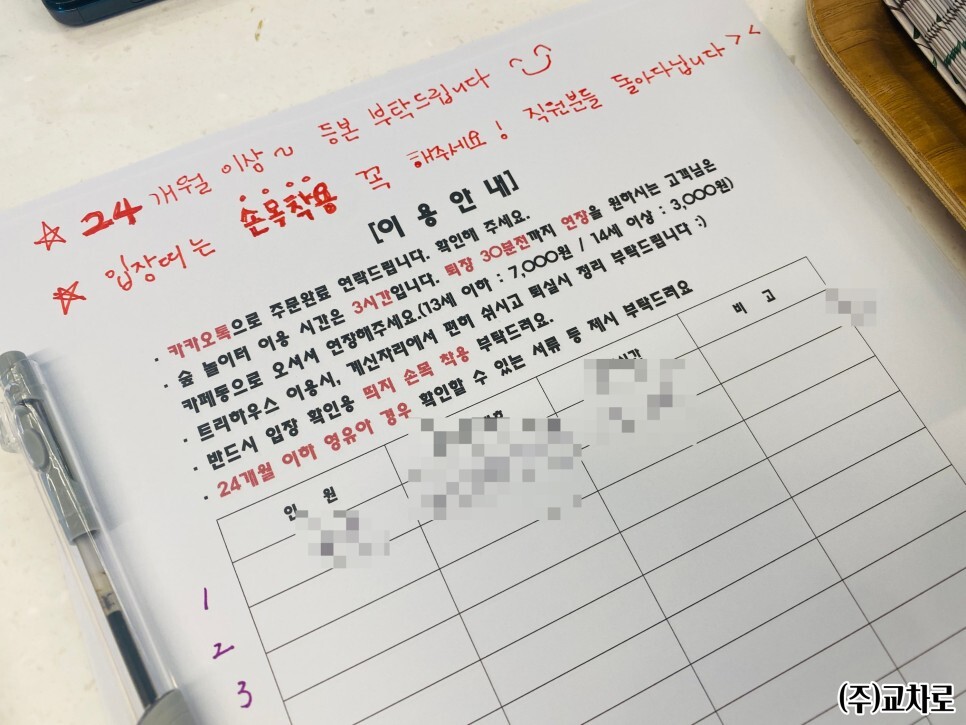 ☆ 24개월 이상~ 등본 부탁드립니다
☆ 입장때는 손목착용 꼭 해주세요! 직원분들 돌아다닙니다 ><
[이용안내]
· 카카오톡으로 주문완료 연락드립니다. 확인해 주세요.
· 숲 놀이터 이용 시간은 3시간입니다. 퇴장 30분전까지 연장을 원하시는 고객님은
카페동으로 오셔서 연장해주세요.(13세 이하 : 7,000원 / 14세 이상 : 3,000원)
· 트리하우스 이용시, 계신자리에서 편히 쉬시고 퇴실시 정리 부탁드립니다 :)
· 반드시 입장 확인용 띠지 손목 착용 부탁드려요.
· 24개월 이하 영유아 경우 확인할 수 있는 서류 등 제시 부탁드려요
인원 시간 비고
1
2
3
(주)교차로